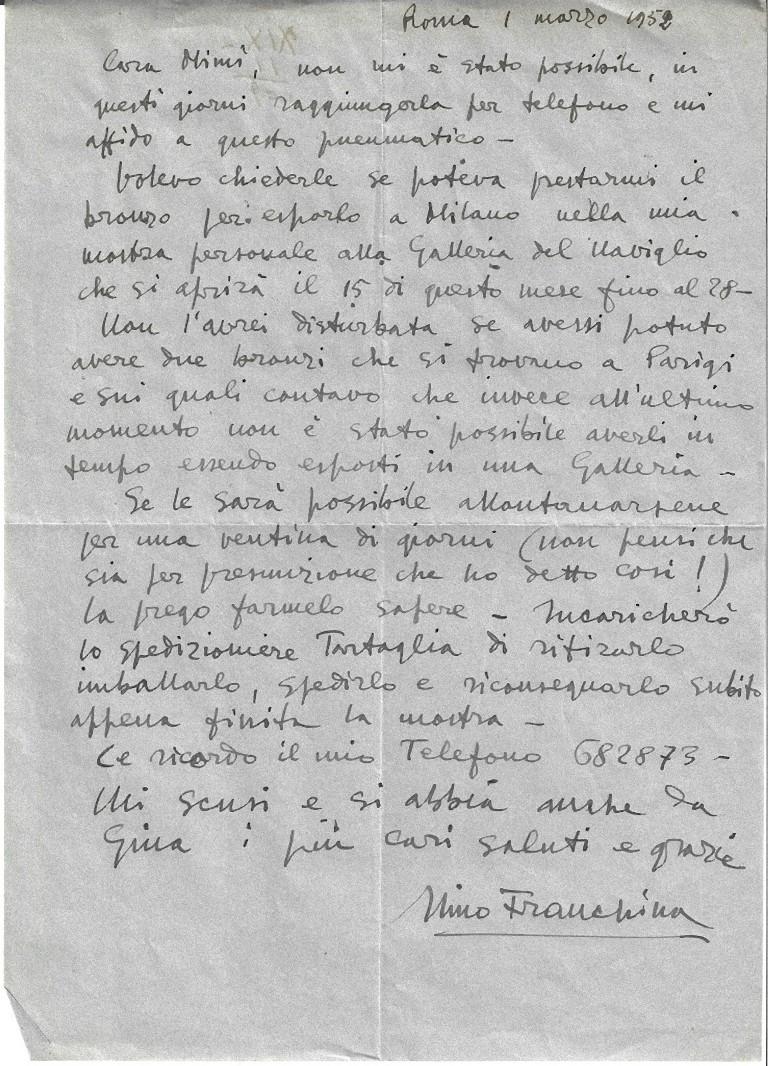 Roma 1 marzo 1952
Cara Mimì, non mi è stato possibile, in
questi giorni raggiungerla per telefono e mi
affido a questo pneumatico –
Volevo chiederle se poteva prestarmi il
bronzo per esporlo a Milano nella mia
mostra personale alla Galleria del Naviglio
che si aprirà il 15 di questo mese fino al 28 –
Non l'avrei disturbata se avessi potuto
avere due bronzi che si trovano a Parigi
e sui quali contavo che invece all'ultimo
momento non è stato possibile averli in
tempo essendo esposti in una Galleria –
Se le sarà possibile allontanarsene
per una ventina di giorni (non pensi che
sia per presunzione che ho detto così!)
la prego farmelo sapere – Incaricherò
lo spedizioniere Tartaglia di ritirarlo
imballarlo, spedirlo e riconsegnarlo subito
appena finita la mostra –
Le ricordo il mio Telefono 682873 –
Mi scusi e si abbia anche da
Gina i più cari saluti e grazie
Nino Franchina